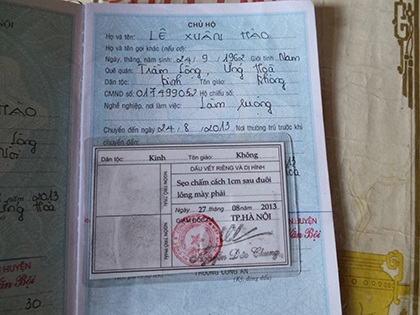 CHỦ HỘ
Họ và tên: LÊ XUÂN HÀO
Họ và tên gọi khác (nếu có):
Ngày, tháng, năm sinh: 24. 9. 1962 Giới tính: Nam
Quê quán: Trầm Lộng, Ứng Hoà
Dân tộc: kinh Tôn giáo: không
CMND số: 017499052 Hộ chiếu số:
Nghề nghiệp, nơi làm việc: Làm ruộng
Chuyển đến ngày 24. 8. 2013 Nơi thường trú trước khi
chuyển đến:
Dân tộc: Kinh Tôn giáo: Không
DẤU VẾT RIÊNG VÀ DỊ HÌNH
Sẹo chấm cách 1cm sau đuôi
lông mày phải
Ngày 27 tháng 08 năm 2013
GIÁM ĐỐC CA TP.HÀ NỘI
NGÓN TRỎ TRÁI
NGÓN TRỎ PHẢI
Nguyễn Đức Chung
TRƯỞNG CÔNG AN
(Ký, đóng dấu)
HÀO
2013
HUYỆN
30